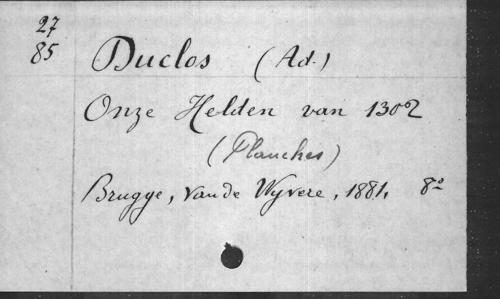 27
85
Duclos (Ad.)
Onze Helden van 1302
(Planches)
Brugge, Van de Wyvere, 1881, 8º